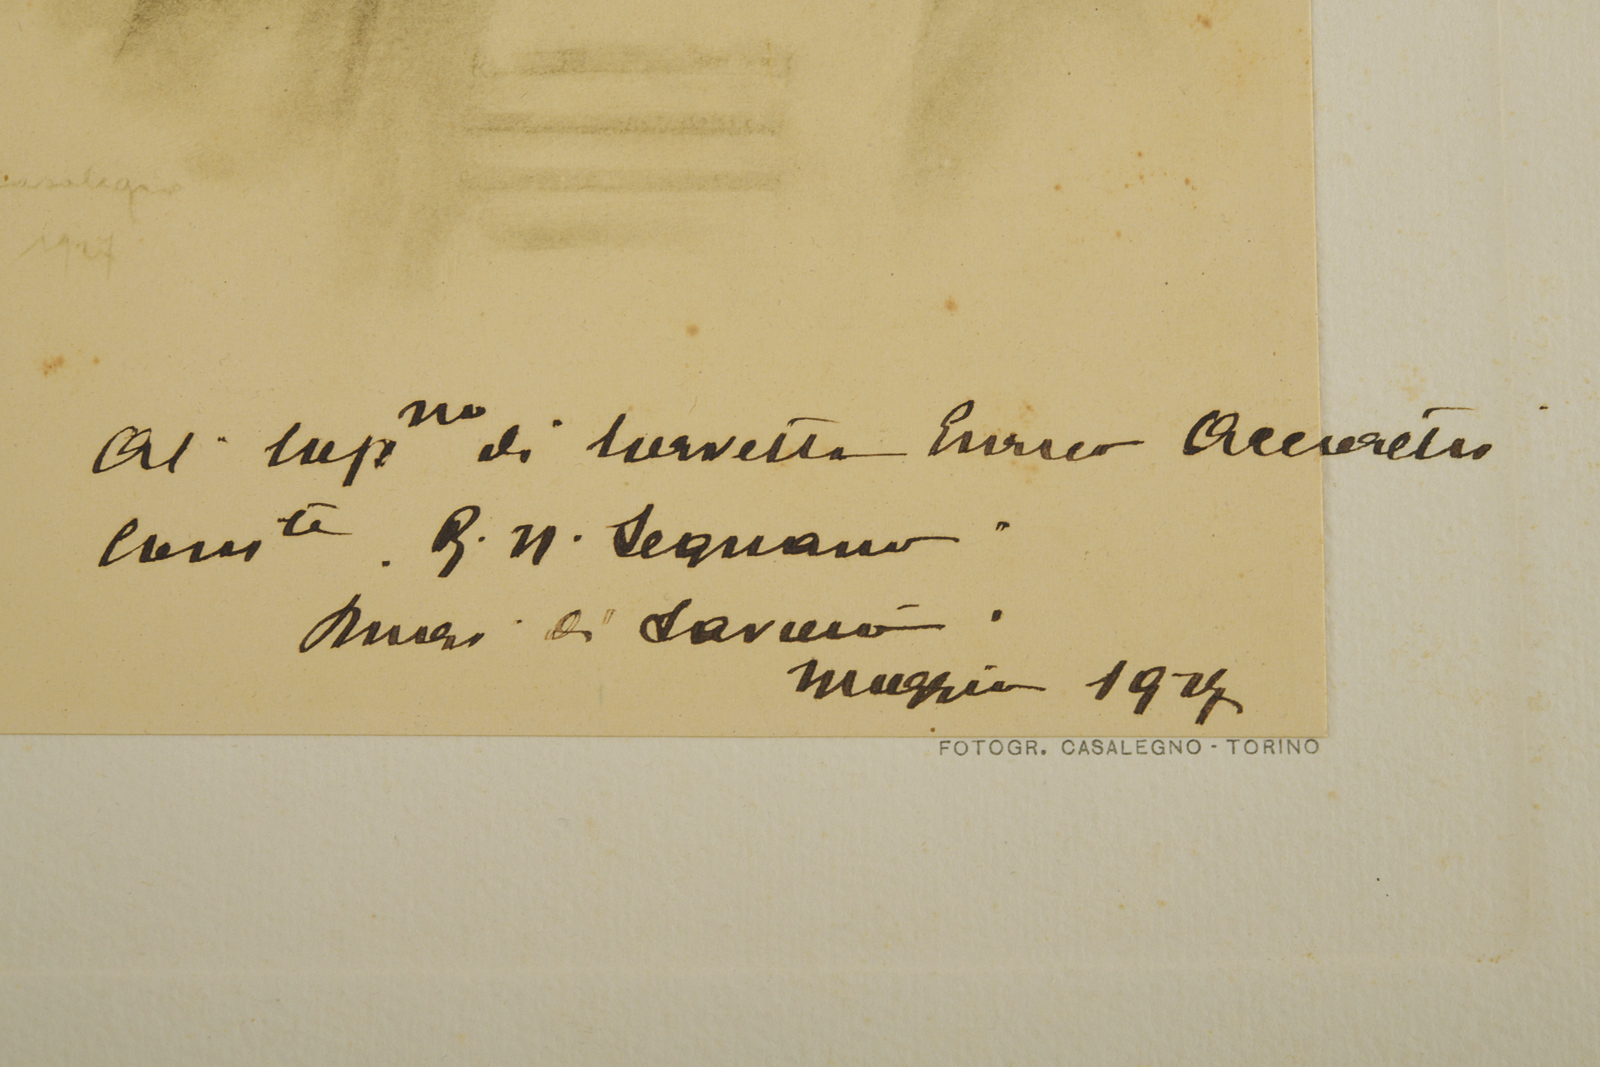 Casalegno
1927
Al Cap.no di Corvetta Enrico Accorretti
Com.te R. N. Legnano
Duca di Savoia
Maggio 1927
FOTOGR. CASALEGNO - TORINO